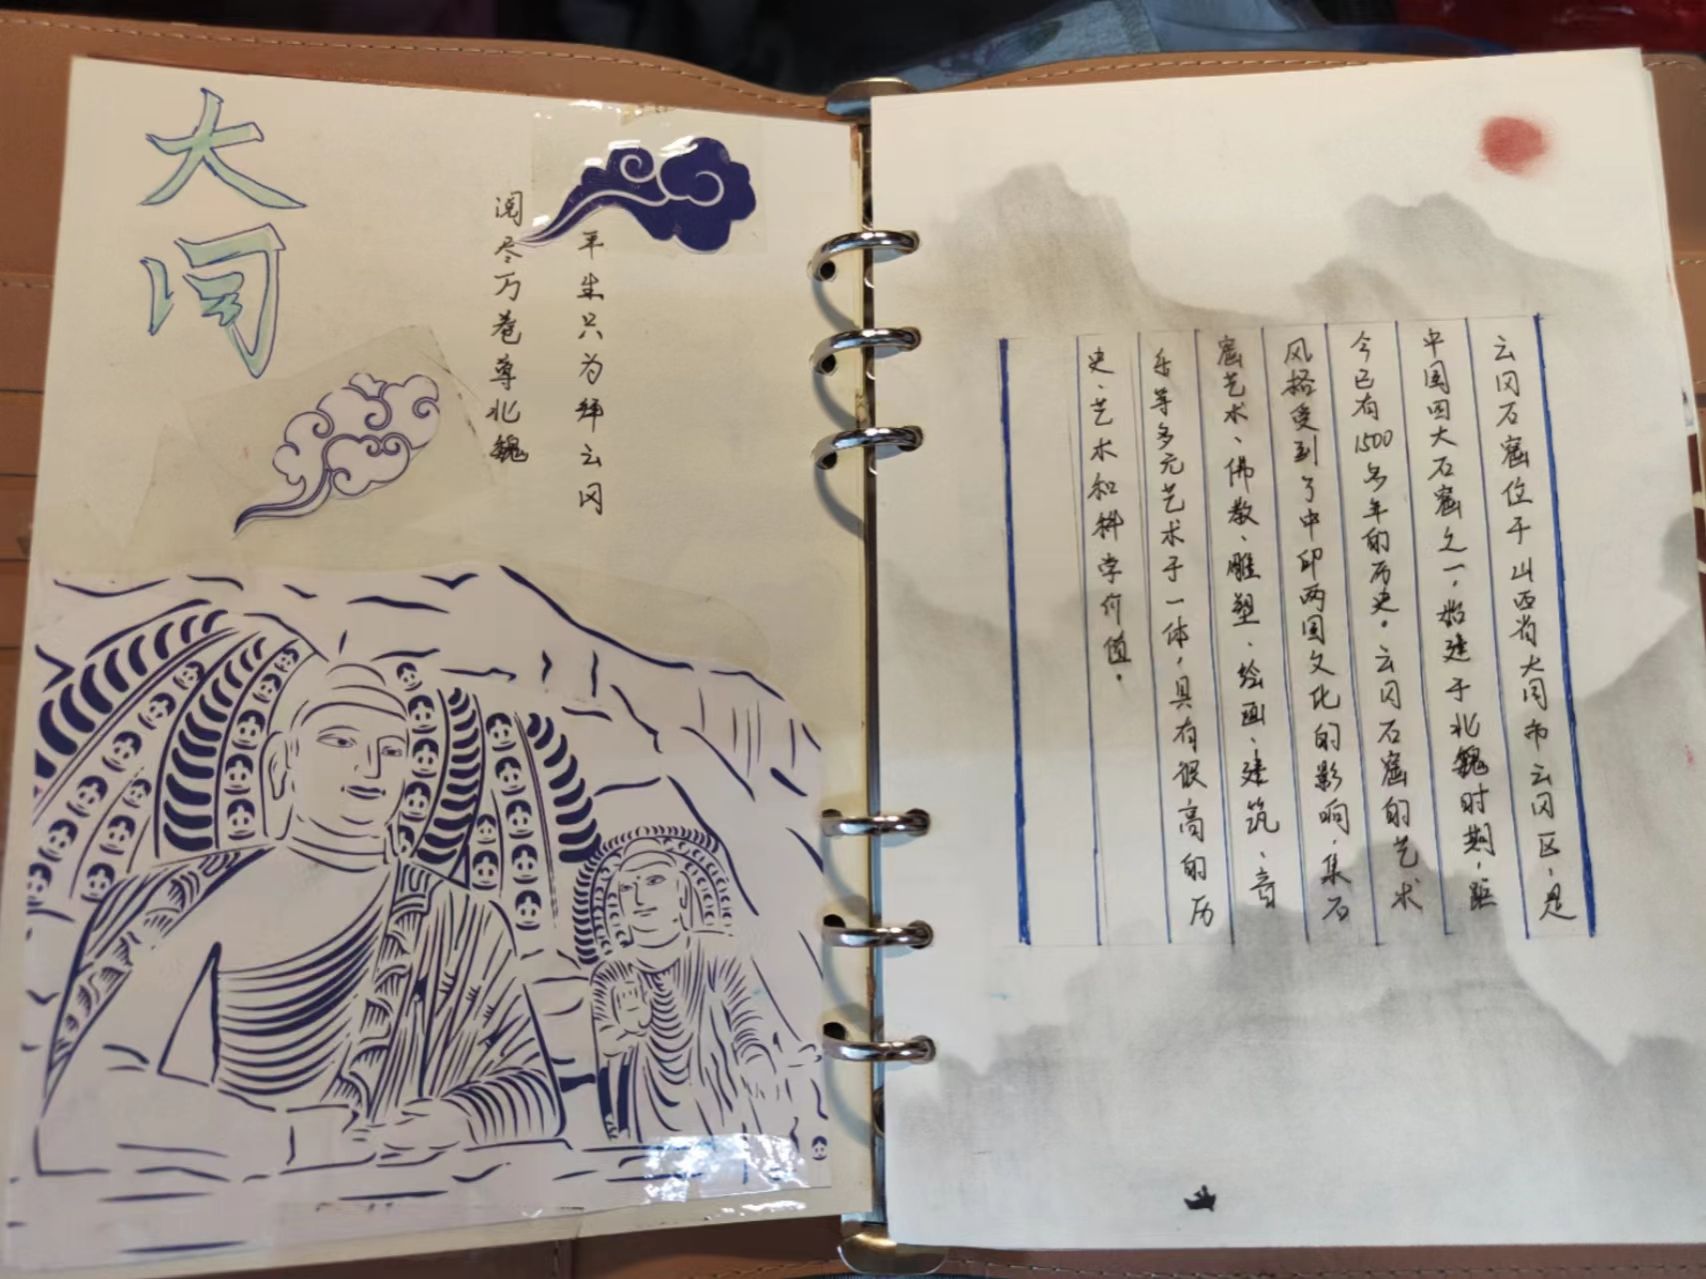 大同
平生只为拜云冈
阅尽万卷尊北魏
云冈石窟位于山西省大同市云冈区，是
中国四大石窟之一，始建于北魏时期，距
今已有1500多年的历史。云冈石窟的艺术
风格受到了中印两国文化的影响，集石
窟艺术、佛教、雕塑、绘画、建筑、音
乐等多元艺术于一体，具有很高的历
史、艺术和科学价值。